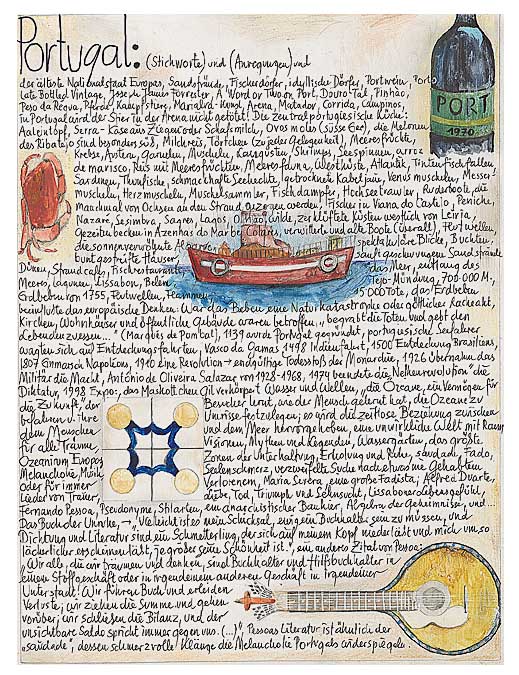 Portugal: (Stichworte) und (Anregungen) und
der älteste Nationalstaat Europas, Sandstrände, Fischerdörfer, idyllische Dörfer, Portwein, Porto
Late Bottled Vintage, Jose James Forrester, A Word or Two on Port, Douro-Tal, Pinhão,
Peso da Régua, Pferde, Kampfstiere, Marialva-Kunst, Arena, Matador, Corrida, Campinos,
in Portugal wird der Stier in der Arena nicht getötet! Die zentralportugiesische Küche:
Aaleintopf, Serra-Käse aus Ziegen oder Schafsmilch, Ovos moles (süsse Eier), die Melonen
des Ribatejo sind besonders süß, Milchreis, Törtchen (zu jeder Gelegenheit), Meeresfrüchte,
Krebse, Austern, Garnelen, Muscheln, Langusten, Shrimps, Seespinnen, arroz
de marisco, Reis mit Meeresfrüchten, Meeresfauna, Westküste, Atlantik, Tintenfischfallen,
Sardinen, Thunfische, schmackhafte Seehechte, getrockneter Kabeljau, Venusmuscheln, Messer
muscheln, Herzmuscheln, Muschelsammler, Fischdampfer, Hochseetrawler, Ruderboote, die
manchmal von Ochsen an den Strand gezogen werden, Fischer in Viana do Castelo, Peniche,
Nazaré, Sesimbra, Sagres, Lagos, Olhão, wilde, zerklüftete Küsten westlich von Leiria,
Gezeitenbecken in Azenhas do Mar bei Colares, verwittert und alte Boote (überall), Flutwellen,
die sonnenverwöhnte Algarve, spektakuläre Blicke, Buchten,
bunt gestreifte Häuser, sanft geschwungene Sandstrände
Dünen, Strandcafés, Fischrestaurants, das Meer, entlang des
Meeres, Lagunen, Lissabon, Belém, Tejo-Mündung, 700 000 M.,
Erdbeben von 1755, Flutwellen, Flammen, 15 000 Tote, das Erdbeben
beeinflusste das europäische Denken: War das Beben eine Naturkatastrophe oder göttlicher Racheakt,
Kirchen, Wohnhäuser und öffentliche Gebäude waren betroffen, „begrabt die Toten und gebt den
Lebenden zu essen..." (Marquês de Pombal), 1139 wurde Portugal gegründet, portugiesische Seefahrer
wagten sich auf Entdeckungsfahrten, Vasco da Gamas 1498 Indienfahrt, 1500 Entdeckung Brasiliens,
1807 Einmarsch Napoleons, 1910 eine Revolution - endgültige Todesstoß der Monarchie, 1926 übernahm das
Militär die Macht, António de Oliveira Salazar von 1928-1968, 1974 beendete die Nelkenrevolution die
Diktatur, 1998 Expo, das Maskottchen Gil verkörpert Wasser und Wellen, die Ozeane, ein Vermögen für
die Zukunft, der Bewohner lernt, wie der Mensch gelernt hat, die Ozeane zu
befahren u. ihre Umrisse festzulegen; es wird die zeitlose Beziehung zwischen
dem Menschen und dem Meer hervorgehoben, eine unwirkliche Welt mit Raum
für alle Träume, Visionen, Mythen und Legenden, Wassergärten, das größte
Ozeanium Europas Zonen der Unterhaltung, Erholung und Ruhe, saudade, Fado,
Melancholie, Musik Seelenschmerz, verzweifelte Suche nach etwas nie Gehabtem
oder für immer Verlorenem, Maria Severa, eine große Fadista, Alfredo Duarte,
Lieder von Trauer, Liebe, Tod, Triumph und Sehnsucht, Lissaboner Lebensgefühl,
Fernando Pessoa, Pseudonyme, Shilarten, ein anarchistischer Bankier, Algebra der Geheimnisse, und...
Das Buch der Unruhe, → „Vielleicht ist es mein Schicksal, ewig ein Buchhalter sein zu müssen, und
Dichtung und Literatur sind ein Schmetterling, der sich auf meinem Kopf niederlässt und mich um so
lächerlicher erscheinen lässt, je größer seine Schönheit ist.", ein anderes Zitat von Pessoa:
„Wir alle, die wir träumen und denken, sind Buchhalter und Hilfsbuchhalter in
einem Stoffgeschäft oder in irgendeinem anderen Geschäft in irgendeiner
Unterstadt! Wir führen Buch und erleiden
Verluste; wir ziehen die Summe und gehen
vorüber; wir schließen die Bilanz, und der
unsichtbare Saldo spricht immer gegen uns. (...)", Pessoas Literatur ist ähnlich der
„saudade", dessen schmerzvolle Klänge die Melancholie Portugals widerspiegeln.
PORT
1970